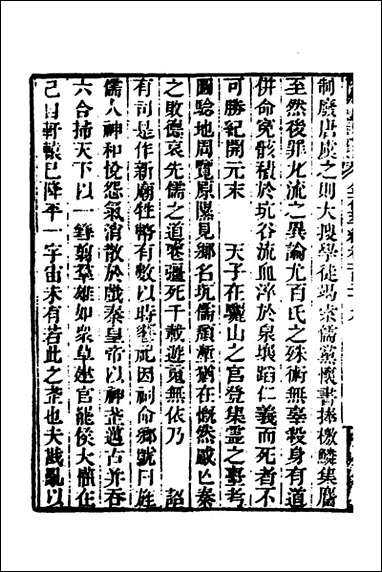 制廢唐虞之則大搜學徒竭索儒黨懷書捧檄鱗集麕
至然後罪九流之異論尤百氏之殊術無辜殺身有道
併命冤骸積於坑谷流血淬於泉壤蹈仁義而死者不
可勝紀開元末 天子在驪山之宮登集靈之臺考
圖驗地周覽原隰見鄉名坑儒頹塹猶在慨然感亡秦
之敗德哀先儒之道喪彊死千載遊魂無依乃 詔
有司是作新廟牲幣有數以時饗祀因祠命鄉號曰旌
儒人神和悅怨氣消散於戲秦皇帝以神武邁古并吞
六合拂天下以一鋒剪羣雄如衆草建官罷侯大權在
己自軒轅已降平一宇宙未有若此之盛也夫戡亂以